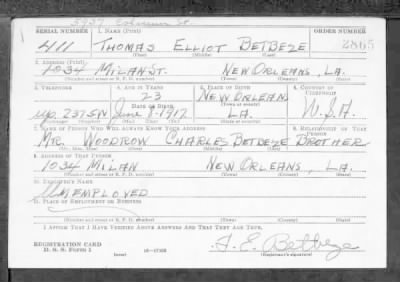 5437 Coliseum St.
SERIAL NUMBER 1. NAME (Print) ORDER NUMBER
411 THOMAS ELLIOT BETBEZE 2805
(First) (Middle) (Last)
2. ADDRESS (Print)
1034 MILAN ST. NEW ORLEANS, LA.
(Number and street or R. F. D. number) (Town) (County) (State)
3. TELEPHONE 4. AGE IN YEARS 5. PLACE OF BIRTH 6. COUNTRY OF CITIZENSHIP
23 NEW ORLEANS
DATE OF BIRTH (Town or county)
UP. 2375W June 1-1917 LA. U.S.A.
(Exchange) (Number) (Mo.) (Day) (Yr.) (State or country)
7. NAME OF PERSON WHO WILL ALWAYS KNOW YOUR ADDRESS 8. RELATIONSHIP OF THAT PERSON
MR. WOODROW CHARLES BETBEZE BROTHER
(Mr., Mrs., Miss) (First) (Middle) (Last)
9. ADDRESS OF THAT PERSON
1034 MILAN NEW ORLEANS, LA.
(Number and street or R. F. D. number) (Town) (County) (State)
10. EMPLOYER'S NAME
UNEMPLOYED
11. PLACE OF EMPLOYMENT OR BUSINESS
(Number and street or R. F. D. number) (Town) (County) (State)
I AFFIRM THAT I HAVE VERIFIED ABOVE ANSWERS AND THAT THEY ARE TRUE.
REGISTRATION CARD
D. S. S. FORM 1 (over) 16-17105 T. E. Betbeze
(Registrant's signature)